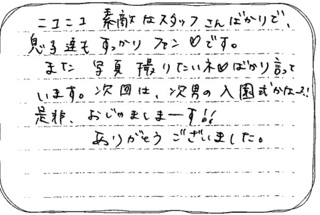 ニコニコ 素敵なスタッフさんばかりで、
息子達も すっかり ファン♡です。
また 写真 撮りたいネ♡ばかり言って
います。次回は、次男の入園式かなー?!
是非、おじゃましまーす!!
ありがとう ございました。